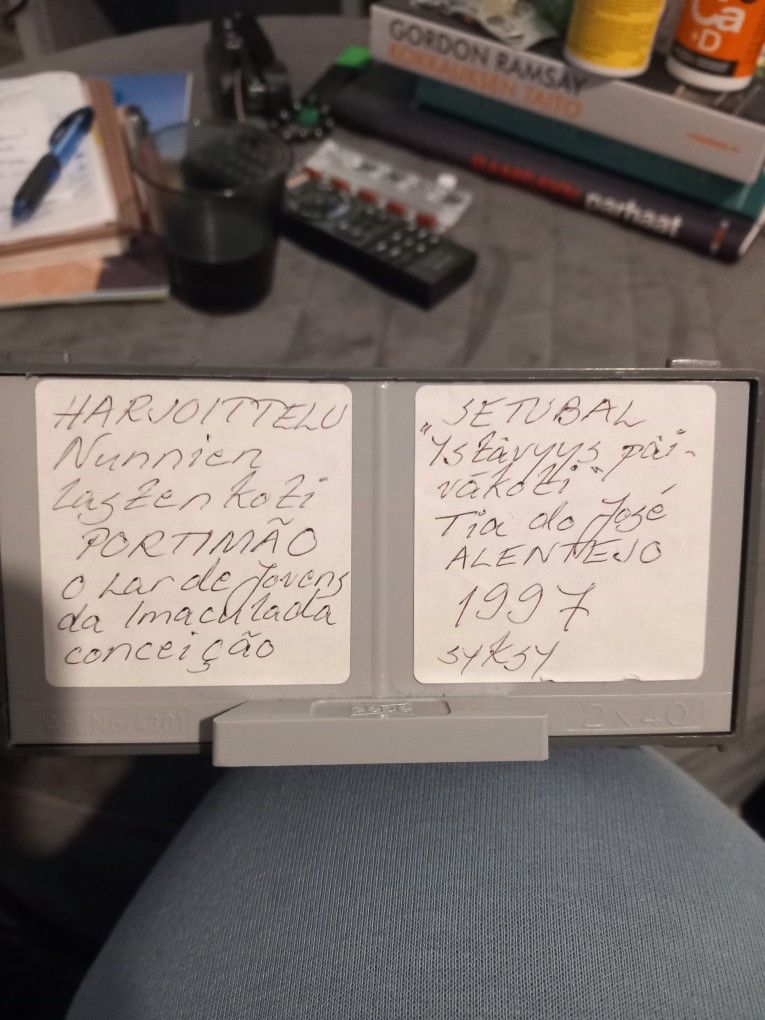 Ca
+D
GORDON RAMSAY
KOKKAUKSEN TAITO
parhaat
HARJOITTELU
Nunnien
lasten koti
PORTIMÃO
O Lar de Jovens
da Imaculada
conceição
SETUBAL
"Ystävyys päi-
väkoti"
Tia do José
ALENTEJO
1997
syksy
Art.No. 4301
2x40